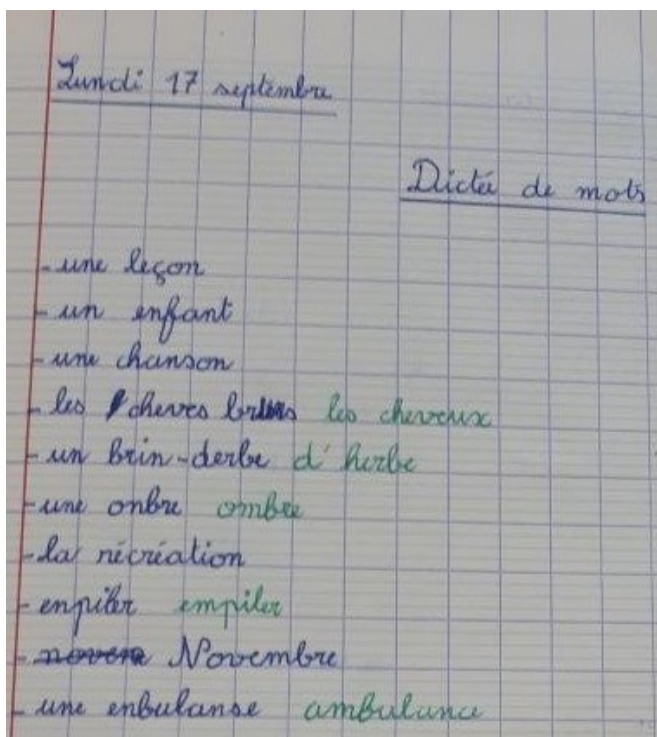 Lundi 17 septembre
Dictée de mots
- une leçon
- un enfant
- une chanson
- les cheves bruns les cheveux
- un brin-derbe d'herbe
- une onbre ombre
- la récréation
- enpiler empiler
- novem Novembre
- une enbulanse ambulance